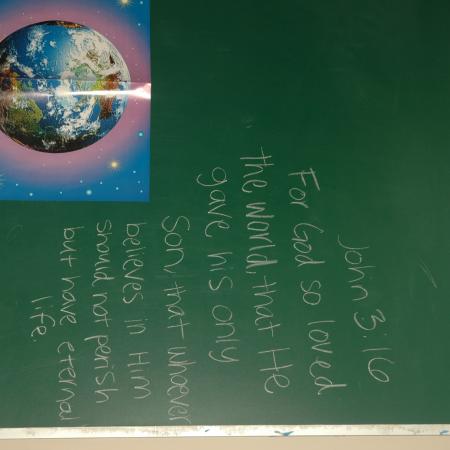 John 3:16
For God so loved
the world, that He
gave his only
Son, that whoever
believes in Him
should not perish
but have eternal
life.